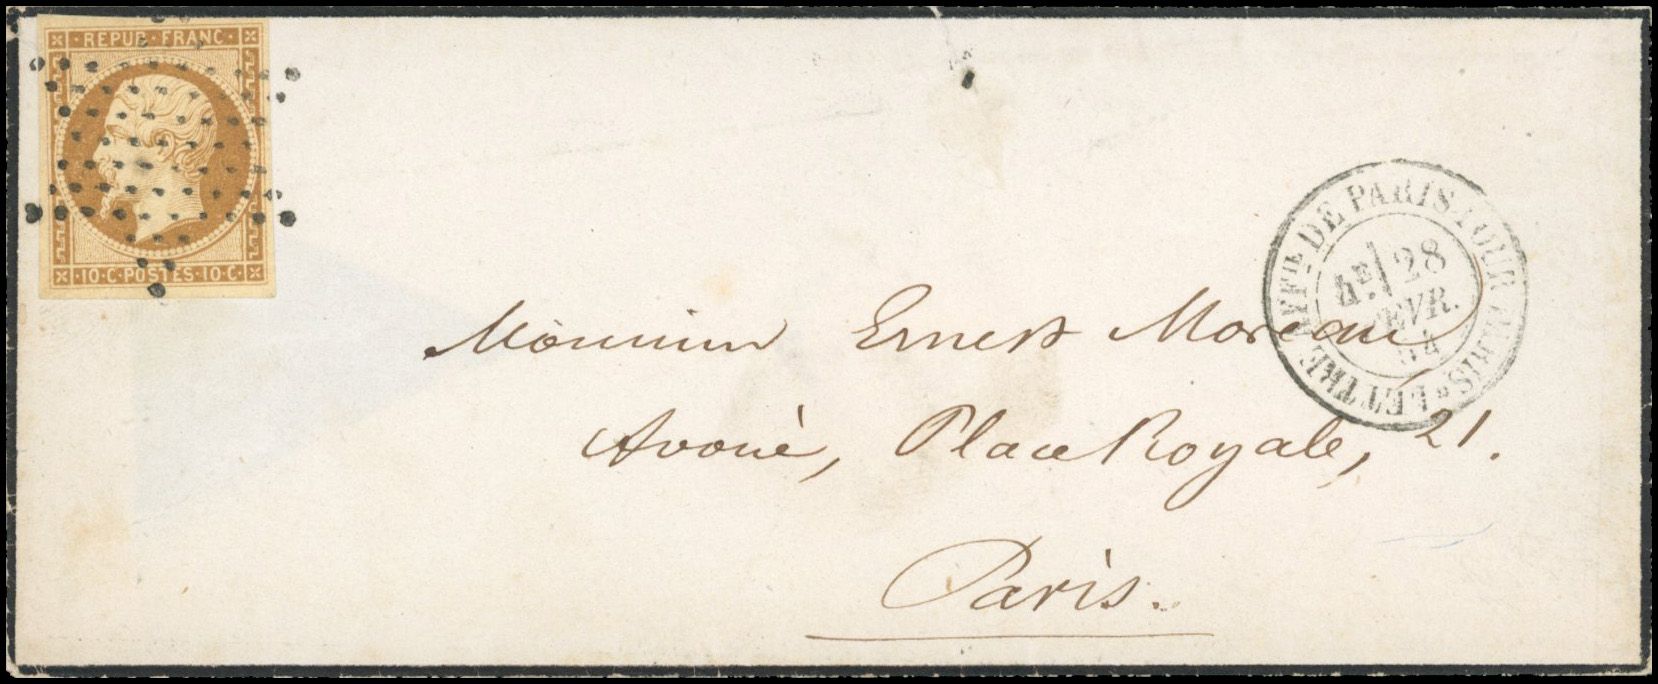 REPUB·FRANC·
·10·C·POSTES·10·C·
LETTRE AFF^IE DE PARIS POUR PARIS
4^E 28
FEVR.
54
Monsieur Ernest Moreau
Avoué, Place Royale, 21.
Paris.